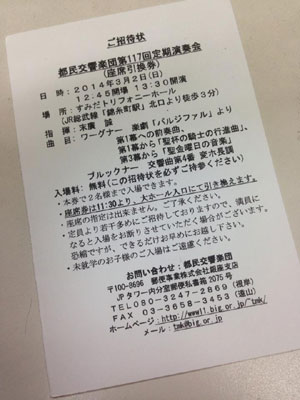 ご招待状
都民交響楽団第117回定期演奏会
(座席引換券)
日 時：2014年3月2日(日)
12.45開場 13:30開演
場 所：すみだトリフォニーホール
(JR総武線「錦糸町駅」北口より徒歩3分)
指 揮：末廣 誠
曲 目：ワーグナー 楽劇「パルジファル」より
第1幕への前奏曲、
第1幕から「聖杯の騎士の行進曲」、
第3幕から「聖金曜日の音楽」
ブルックナー 交響曲第4番 変ホ長調
入場料：無料(この招待状を必ずご持参ください)
・本券で2名様まで入場できます。
・座席券は11:30より、大ホール入口にて引き換えます。
・座席の指定は出来ません。ご了承ください。
・定員より若干多めにご招待しておりますので、満員に
なると入場をお断りさせていただく場合がございます。
恐縮ですが、できるだけお早めにお越し下さい。
・未就学のお子様のご入場はご遠慮ください。
お問い合わせ：都民交響楽団
〒100-8696 郵便事業株式会社銀座支店
JPタワー内分室郵便私書箱 2075号
TEL080-3247-2869(視岸)
FAX 03-3658-3453(遠山)
ホームページ：http://www11.big.or.jp/~tmk/
メール：tmk@big.or.jp